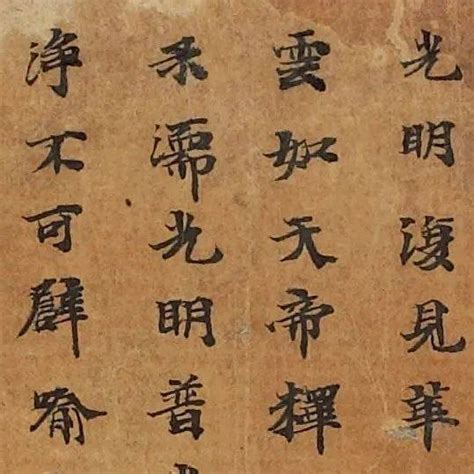 光明復見華
雲如天帝釋
禾濡光明普
浄不可譬喻